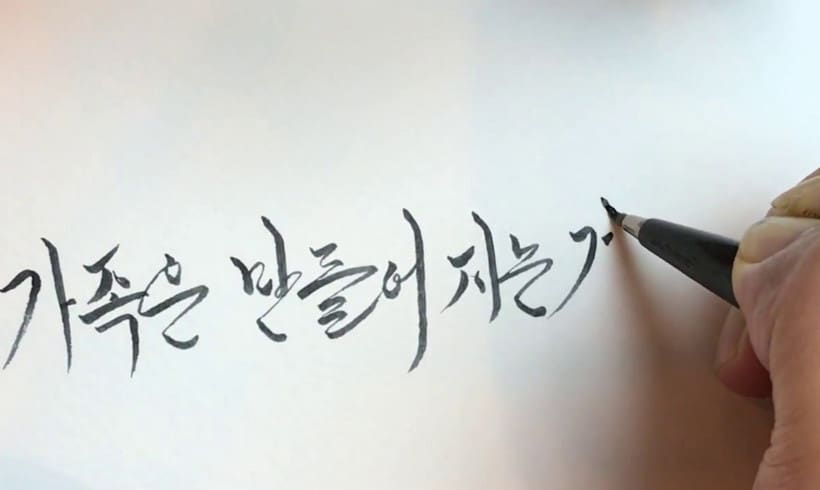 가족은 만들어 지는